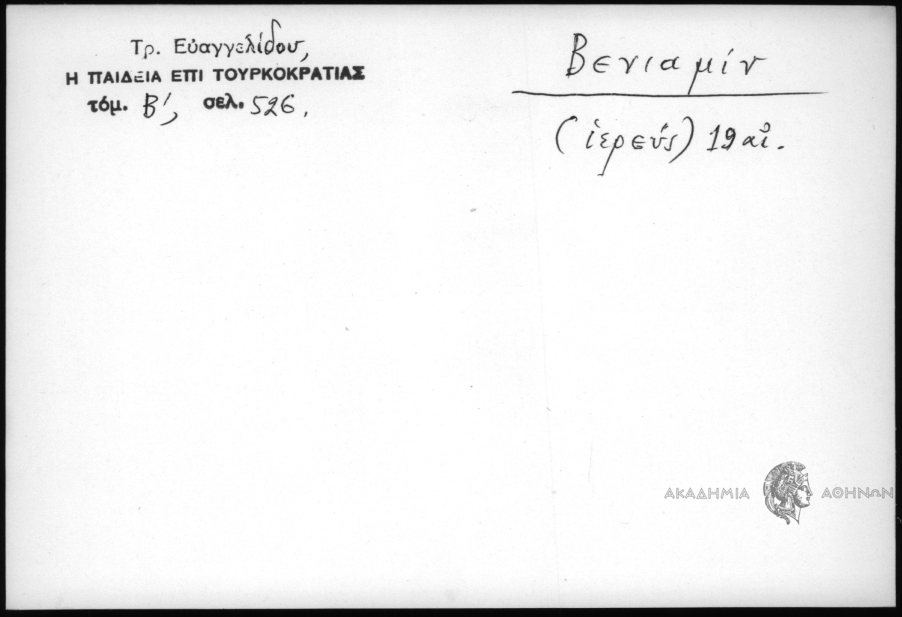 Τρ. Εὐαγγελίδου,
Η ΠΑΙΔΕΙΑ ΕΠΙ ΤΟΥΡΚΟΚΡΑΤΙΑΣ
τόμ. Β', σελ. 526.
Βενιαμίν
(ἱερεύς) 19 αἰ.
ΑΚΑΔΗΜΙΑ ΑΘΗΝΩΝ